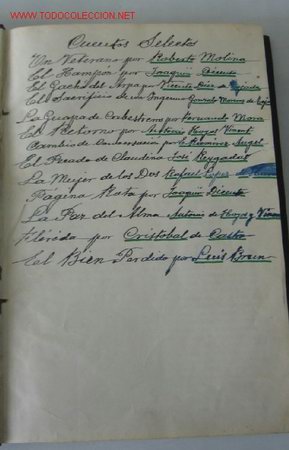 WWW.TODOCOLECCION.NET
Cuentos Selectos
Un Veterano por Roberto Molina
El Hampón por Joaquin Dicenta
El Gacho del Arpa por Vicente Diez de Tejada
El Sacrificio de un Ingenuo Gonzalo Morenas de Tejada
La Guapa de Cabestreros por Fernando Mora
El Retorno por Antonio Hoyos Vinent
Cambio de por Ramirez Angel
El Pecado de Claudina José
La Mujer de los Dos Rafael Lopez de
Página Rota por Joaquin Dicenta
La Paz del Alma Antonio de Hoyos y Vinent
Flérida por Cristobal de Castro
El Bien Perdido por Luis Brun